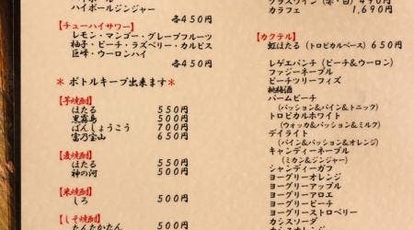 ハイボールジンジャー
各450円
【チューハイサワー】
レモン・マンゴー・グレープフルーツ
柚子・ピーチ・ラズベリー・カルピス
巨峰・ウーロンハイ
各450円
＊ ボトルキープ出来ます＊
【芋焼酎】
ほたる 550円
黒霧島 500円
ばんしょうこう 700円
富乃宝山 650円
【麦焼酎】
ほたる 550円
神の河 500円
【米焼酎】
しろ 500円
【しそ焼酎】
たんたかたん 500円
グラスワイン（赤・白）490円
カラフェ 1,690円
【カクテル】
虹ほたる（トロピカルベース）650円
レゲエパンチ（ピーチ&ウーロン）
ファジーネーブル
ピーチツリーフィズ
桃梅酒
パームビーチ
（パッション&パイン&トニック）
トロピカルホワイト
（ウォッカ&パッション&ミルク）
デイライト
（パイン&パッション&オレンジ）
キャンディーネーブル
（ミカン&ジンジャー）
シャンディーガフ
ヨーグリーオレンジ
ヨーグリーアップル
ヨーグリーアロエ
ヨーグリーピーチ
ヨーグリーストロベリー
カシスソーダ
カシスオレンジ